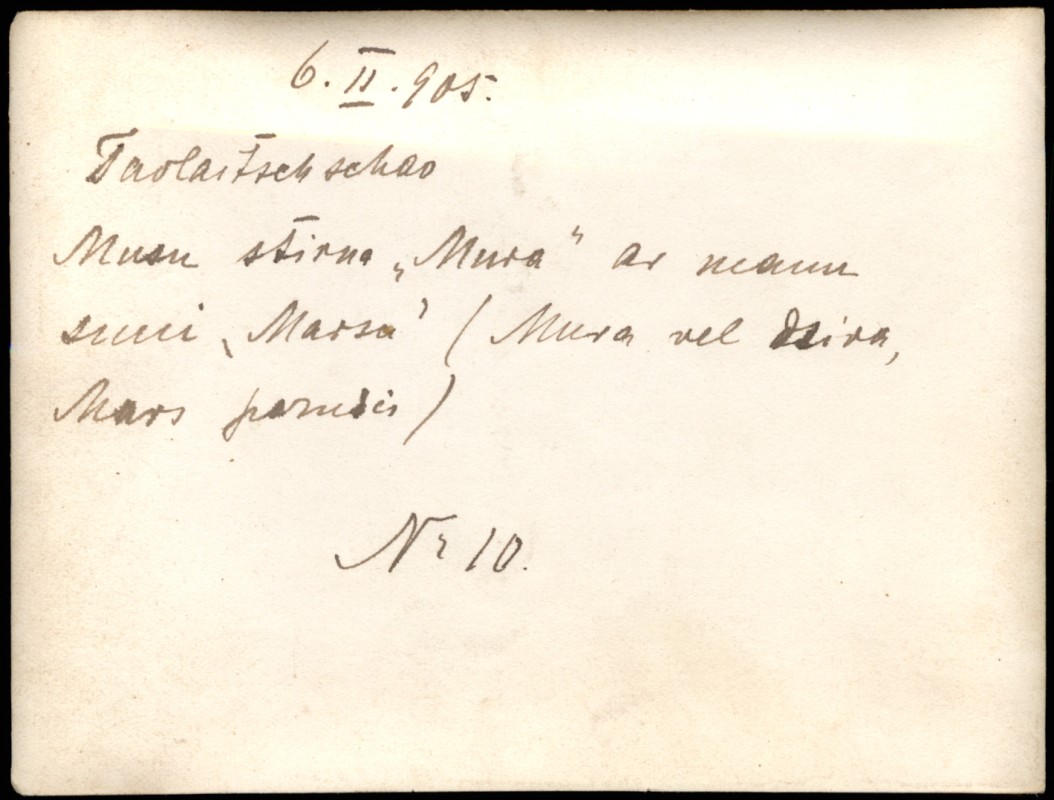 6. II. 905.
Taolaitschschao
Musu stirna „Mura" ar mannu
suni „Marsu" (Mura vel dsira,
Mars pamisis)
Nr 10.